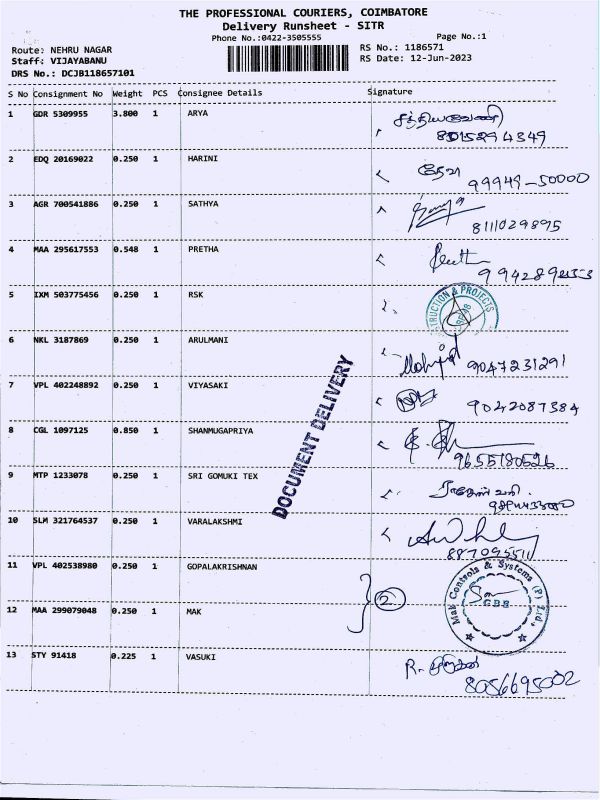 THE PROFESSIONAL COURIERS, COIMBATORE
Delivery Runsheet - SITR
Phone No.:0422-3505555
Page No.:1
Route: NEHRU NAGAR
RS No.: 1186571
Staff: VIJAYABANU
RS Date: 12-Jun-2023
DRS No.: DCJB118657101
S No Consignment No Weight PCS Consignee Details Signature
1 GDR 5309955 3.800 1 ARYA
8015294349
2 EDQ 20169022 0.250 1 HARINI
99949-50000
3 AGR 700541886 0.250 1 SATHYA
8111029895
4 MAA 295617553 0.548 1 PRETHA
5 IXM 503775456 0.250 1 RSK
& PROJECTS
6 NKL 3187869 0.250 1 ARULMANI
9047231291
7 VPL 402248892 0.250 1 VIYASAKI
9042087384
8 CGL 1097125 0.850 1 SHANMUGAPRIYA
9655180526
9 MTP 1233078 0.250 1 SRI GOMUKI TEX
DOCUMENT DELIVERY
10 SLM 321764537 0.250 1 VARALAKSHMI
11 VPL 402538980 0.250 1 GOPALAKRISHNAN
Mak Controls & Systems (P) Ltd.,
CBE
2
12 MAA 299079048 0.250 1 MAK
13 STY 91418 0.225 1 VASUKI
8056695002